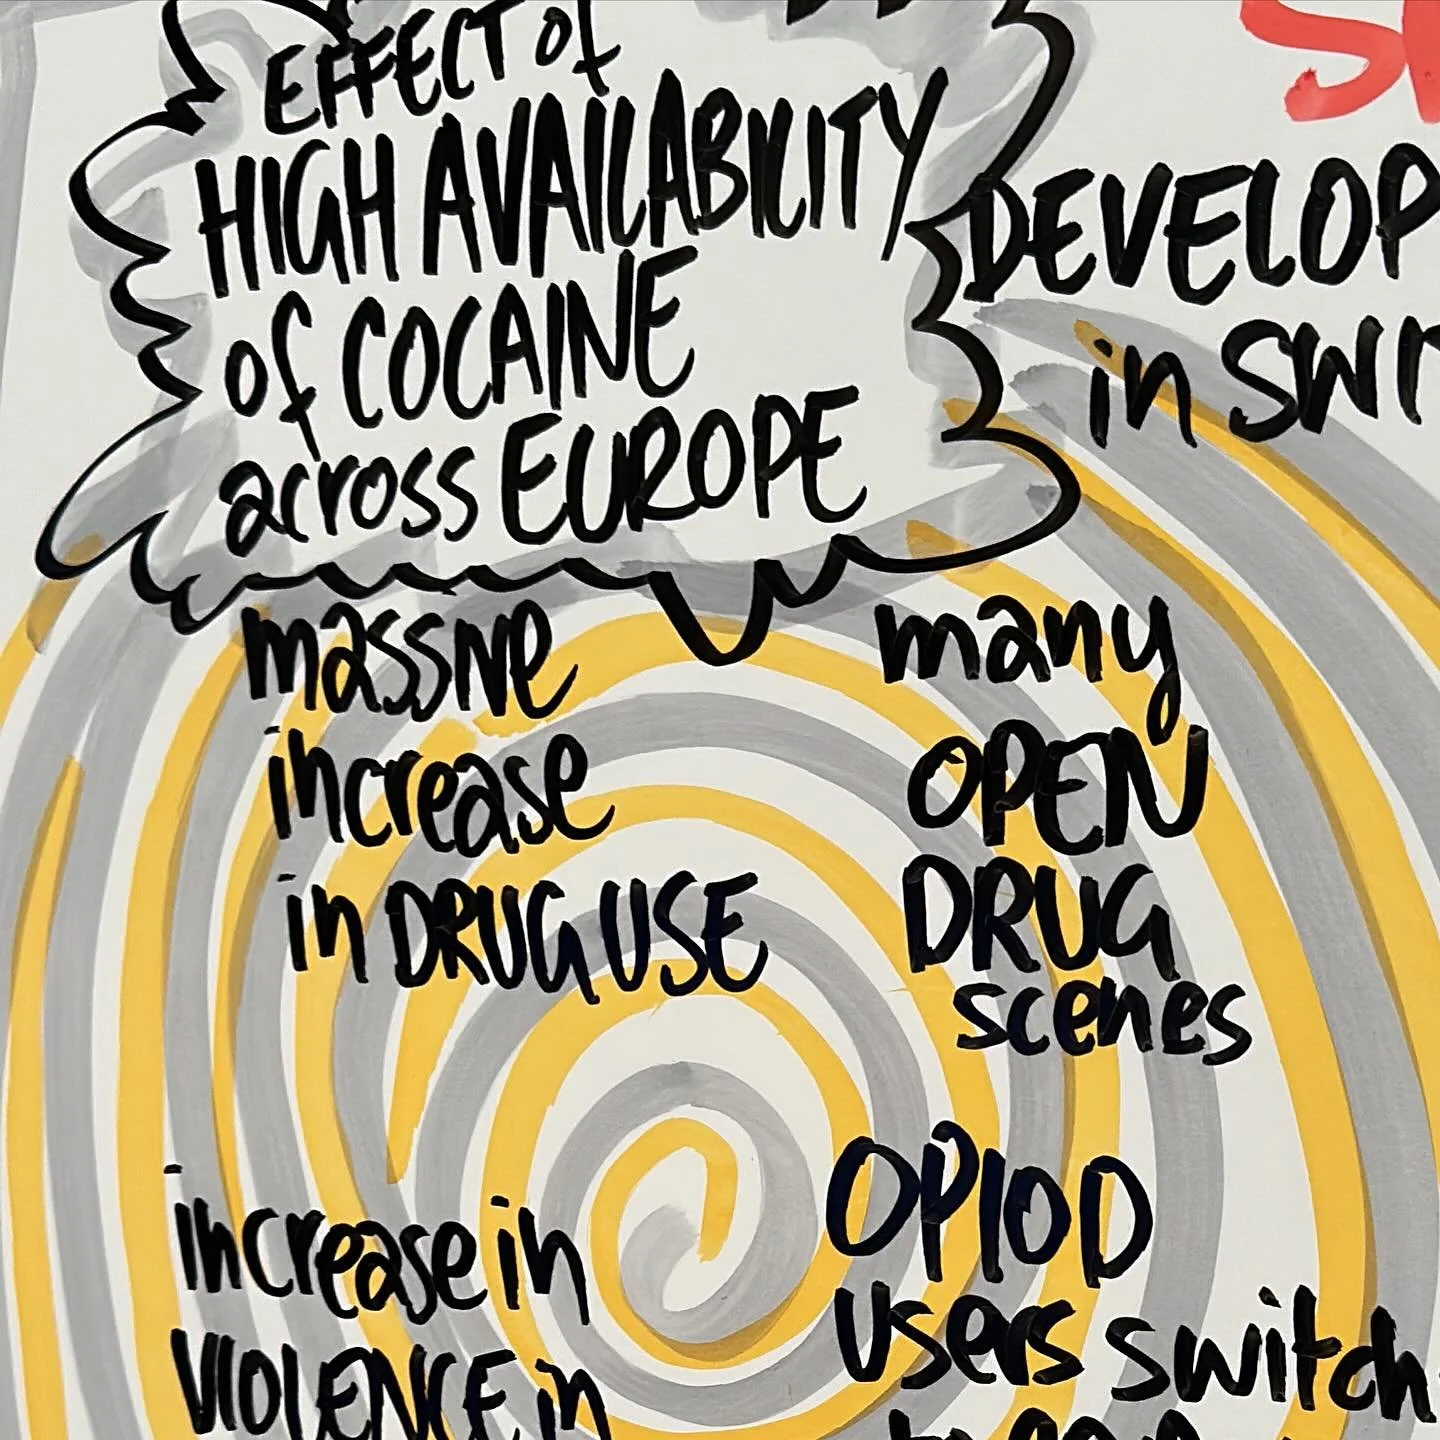 EFFECT of
HIGH AVAILABILITY
of COCAINE
across EUROPE
DEVELOP
in SWIT
massive
increase
in DRUG USE
many
OPEN
DRUG
scenes
increase in
VIOLENCE in
OPIOD
users switch